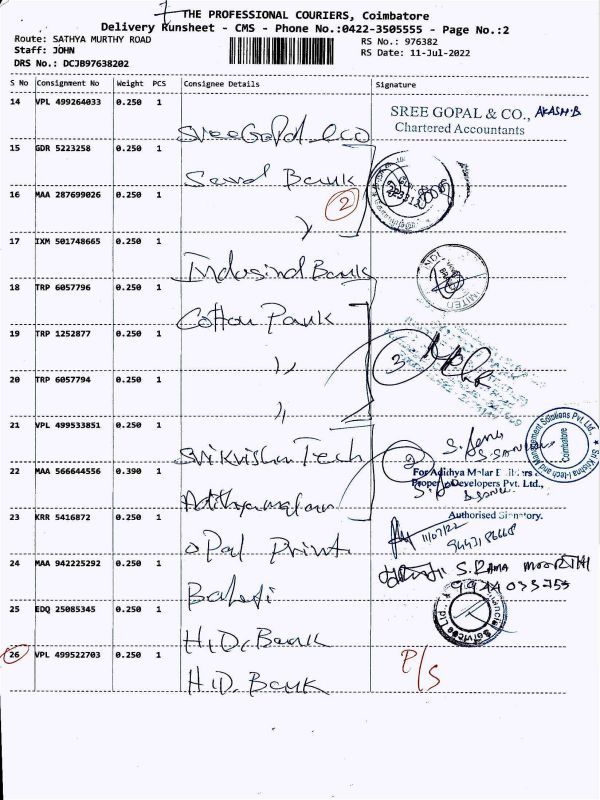 THE PROFESSIONAL COURIERS, Coimbatore
Delivery Runsheet - CMS - Phone No.:0422-3505555 - Page No.:2
Route: SATHYA MURTHY ROAD RS No.: 976382
Staff: JOHN RS Date: 11-Jul-2022
DRS No.: DCJB97638202
S No Consignment No Weight PCS Consignee Details Signature
14 VPL 499264033 0.250 1
SREE GOPAL & CO., AKASH.B
Chartered Accountants
Sree Gopal &co
15 GDR 5223258 0.250 1
Bank
16 MAA 287699026 0.250 1
2
17 IXM 501748665 0.250 1
Indusind Bank
18 TRP 6057796 0.250 1
Cotton Park
19 TRP 1252877 0.250 1
3
20 TRP 6057794 0.250 1
21 VPL 499533851 0.250 1
Srikrishna Tech
Coimbatore
22 MAA 566644556 0.390 1
2
For Adithya Malar Builders
Developers Pvt. Ltd.,
Adithyamalar
23 KRR 5416872 0.250 1
Authorised Signatory.
11/07/22
Opal Print
24 MAA 942225292 0.250 1
S. RAMA MOORTHI
25 EDQ 25085345 0.250 1
H.D. Bank
26 VPL 499522703 0.250 1
P/S
H.D. Bank